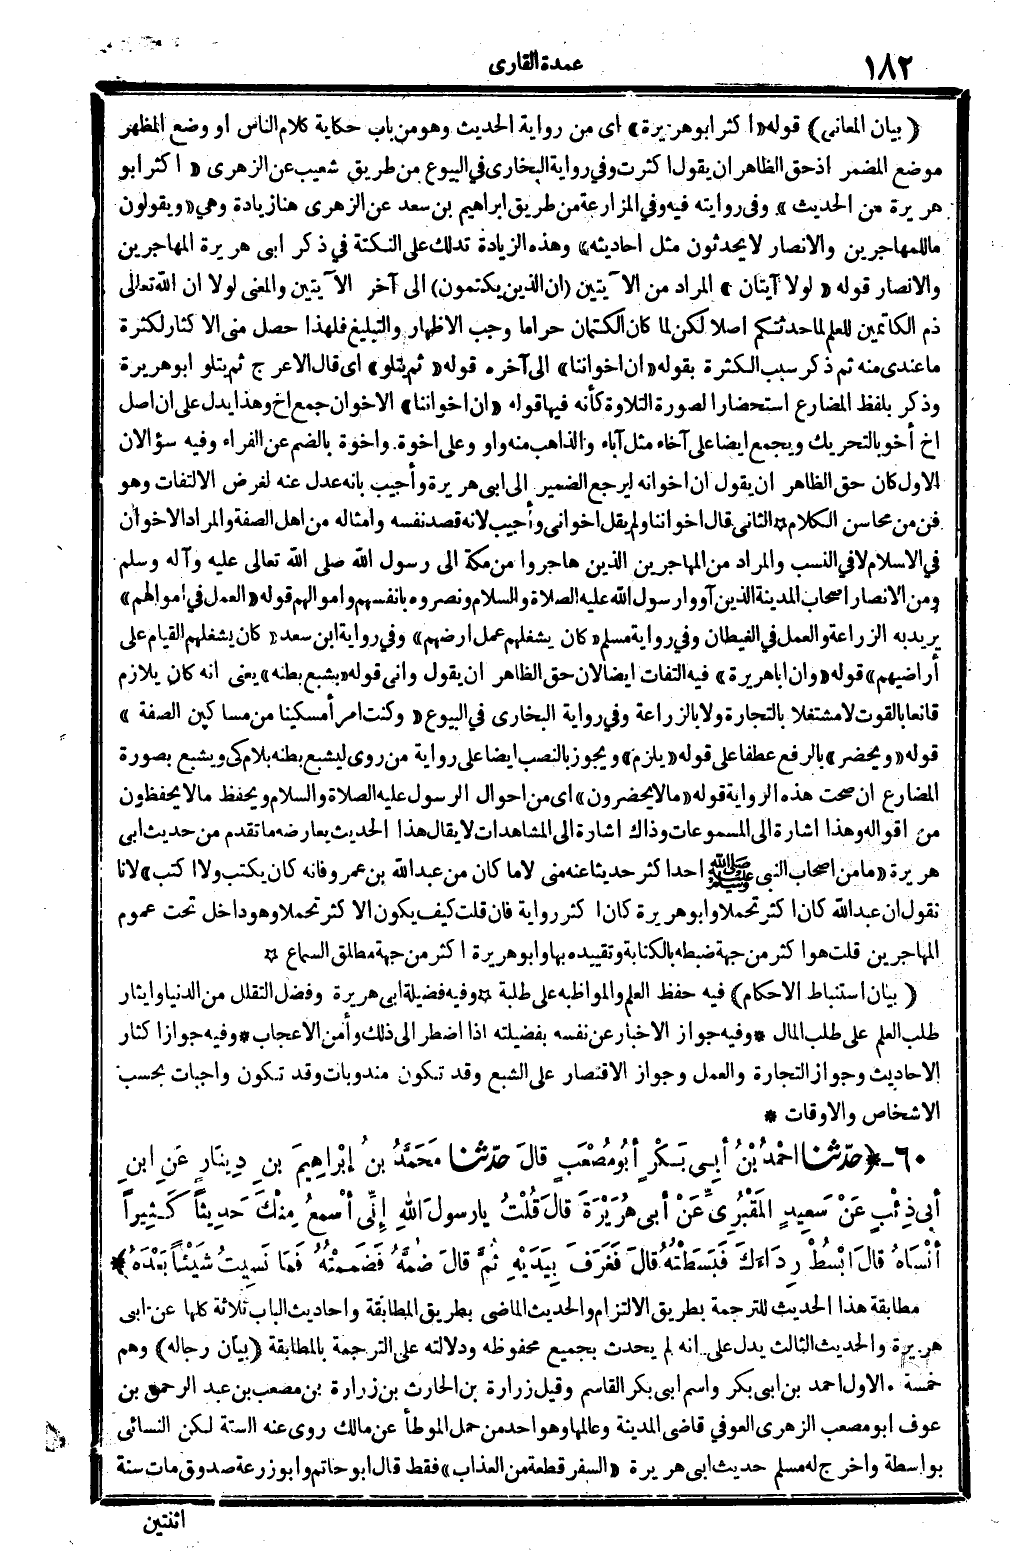 ١٨٢
عمدة القارى
( بيان المعانى ) قوله « اكثر ابو هريرة » اى من رواية الحديث وهو من باب حكاية كلام الناس او وضع المظهر
موضع المضمر اذ حق الظاهر ان يقول اكثرت وفي رواية البخارى في البيوع من طريق شعيب عن الزهرى « اكثر ابو
هريرة من الحديث » وفى روايته فيه وفي المزارعة من طريق ابراهيم بن سعد عن الزهرى هنا زيادة وهي « ويقولون
ما للمهاجرين والانصار لا يحدثون مثل احاديثه » وهذه الزيادة تدلك على النكتة في ذكر ابى هريرة المهاجرين
والانصار قوله « لولا آيتان » المراد من الآيتين (ان الذين يكتمون) الى آخر الآيتين والمعنى لولا ان الله تعالى
ذم الكاتمين للعلم لما حدثتكم اصلا لكن لما كان الكتمان حراما وجب الاظهار والتبليغ فلهذا حصل منى الاكثار لكثرة
ما عندى منه ثم ذكر سبب الكثرة بقوله « ان اخواننا » الى آخره قوله « ثم يتلو » اى قال الاعرج ثم يتلو ابو هريرة
وذكر بلفظ المضارع استحضارا لصورة التلاوة كأنه فيها قوله « ان اخواننا » الاخوان جمع اخ وهذا يدل على ان اصل
اخ أخو بالتحريك ويجمع ايضا على آخاء مثل آباء والذاهب منه واو وعلى اخوة. واخوة بالضم عن الفراء وفيه سؤالان
الاول كان حق الظاهر ان يقول ان اخوانه ليرجع الضمير الى ابى هريرة وأجيب بانه عدل عنه لغرض الالتفات وهو
فن من محاسن الكلام ☆ الثانى قال اخواننا ولم يقل اخوانى وأجيب لانه قصد نفسه وامثاله من اهل الصفة والمراد الاخوان
في الاسلام لا في النسب والمراد من المهاجرين الذين هاجروا من مكة الى رسول الله صلى الله تعالى عليه وآله وسلم
ومن الانصار اصحاب المدينة الذين آووا رسول الله عليه الصلاة والسلام ونصروه بانفسهم واموالهم قوله « العمل في اموالهم »
يريد به الزراعة والعمل في الغيطان وفي رواية مسلم « كان يشغلهم عمل ارضهم » وفي رواية ابن سعد « كان يشغلهم القيام على
أراضيهم » قوله « وان ابا هريرة » فيه التفات ايضا لان حق الظاهر ان يقول وانى قوله « بشبع بطنه » يعنى انه كان يلازم
قانعا بالقوت لا مشتغلا بالتجارة ولا بالزراعة وفي رواية البخارى في البيوع « وكنت امرأ مسكينا من مساكين الصفة »
قوله « ويحضر » بالرفع عطفا على قوله « يلزم » ويجوز بالنصب ايضا على رواية من روى ليشبع بطنه بلام كى ويشبع بصورة
المضارع ان صحت هذه الرواية قوله « ما لا يحضرون » اى من احوال الرسول عليه الصلاة والسلام ويحفظ ما لا يحفظون
من اقواله وهذا اشارة الى المسموعات وذاك اشارة الى المشاهدات لا يقال هذا الحديث يعارضه ما تقدم من حديث ابى
هريرة « ما من اصحاب النبى ﷺ احد اكثر حديثا عنه منى الا ما كان من عبدالله بن عمرو فانه كان يكتب ولا اكتب » لانا
نقول ان عبدالله كان اكثر تحملا وابو هريرة كان اكثر رواية فان قلت كيف يكون الاكثر تحملا وهو داخل تحت عموم
المهاجرين قلت هو اكثر من جهة ضبطه بالكتابة وتقييده بها وابو هريرة اكثر من جهة مطلق السماع ☆
( بيان استنباط الاحكام ) فيه حفظ العلم والمواظبه على طلبة ☆ وفيه فضيلة ابى هريرة وفضل التقلل من الدنيا وايثار
طلب العلم على طلب المال * وفيه جواز الاخبار عن نفسه بفضيلته اذا اضطر الى ذلك وأمن الاعجاب * وفيه جواز اكثار
الاحاديث وجواز التجارة والعمل وجواز الاقتصار على الشبع وقد تكون مندوبات وقد تكون واجبات بحسب
الاشخاص والاوقات *
٦٠ - ﴿ حدّثنا احْمَدُ بْنُ أَبِي بَكْرٍ أَبُو مُصْعَبٍ قالَ حدّثنا مُحَمَّدُ بنُ إبْراهِيمَ بنِ دِينَارٍ عَنِ ابنِ
أبى ذِئْبٍ عَنْ سَعِيدٍ المَقْبُرِىِّ عَنْ أبى هُرَيْرَةَ قالَ قُلْتُ يا رسولَ اللهِ إنِّى أسْمعُ مِنْكَ حَدِيثاً كَثِيراً
أنْساهُ قالَ ابْسُطْ رِدَاءَكَ فَبَسَطْتُهُ قالَ فَغَرَفَ بِيَدَيْهِ ثُمَّ قالَ ضُمَّهُ فَضَمَمْتُهُ فَمَا نَسِيتُ شَيْئاً بَعْدَهُ ﴾
مطابقة هذا الحديث للترجمة بطريق الالتزام والحديث الماضى بطريق المطابقة واحاديث الباب ثلاثة كلها عن ابى
هريرة والحديث الثالث يدل على انه لم يحدث بجميع محفوظه ودلالته على الترجمة بالمطابقة (بيان رجاله) وهم
خمسة . الاول احمد بن ابى بكر واسم ابى بكر القاسم وقيل زرارة بن الحارث بن زرارة بن مصعب بن عبد الرحمن بن
عوف ابو مصعب الزهرى العوفي قاضى المدينة وعالمها وهو احد من حمل الموطأ عن مالك روى عنه الستة لكن النسائى
بواسطة واخرج له مسلم حديث ابى هريرة « السفر قطعة من العذاب » فقط قال ابو حاتم وابو زرعة صدوق مات سنة
اثنتين